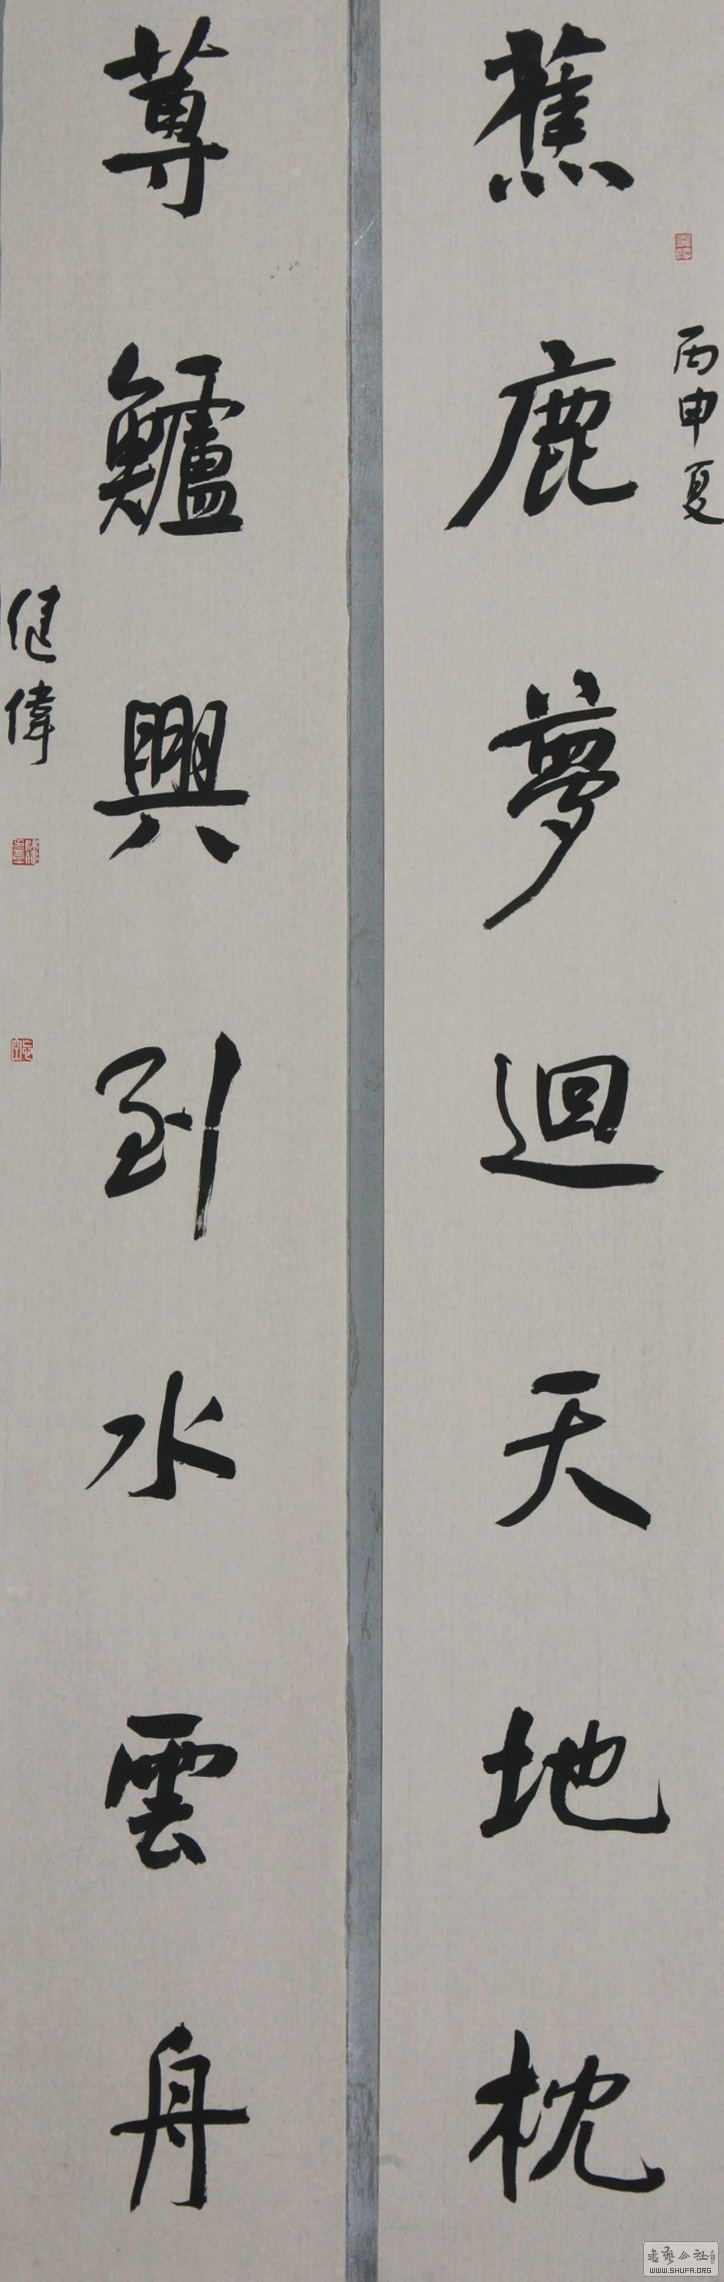 丙申夏
蕉鹿夢迴天地枕
蓴鱸興到水雲舟
健偉
書藝公社
WWW.SHUFA.ORG